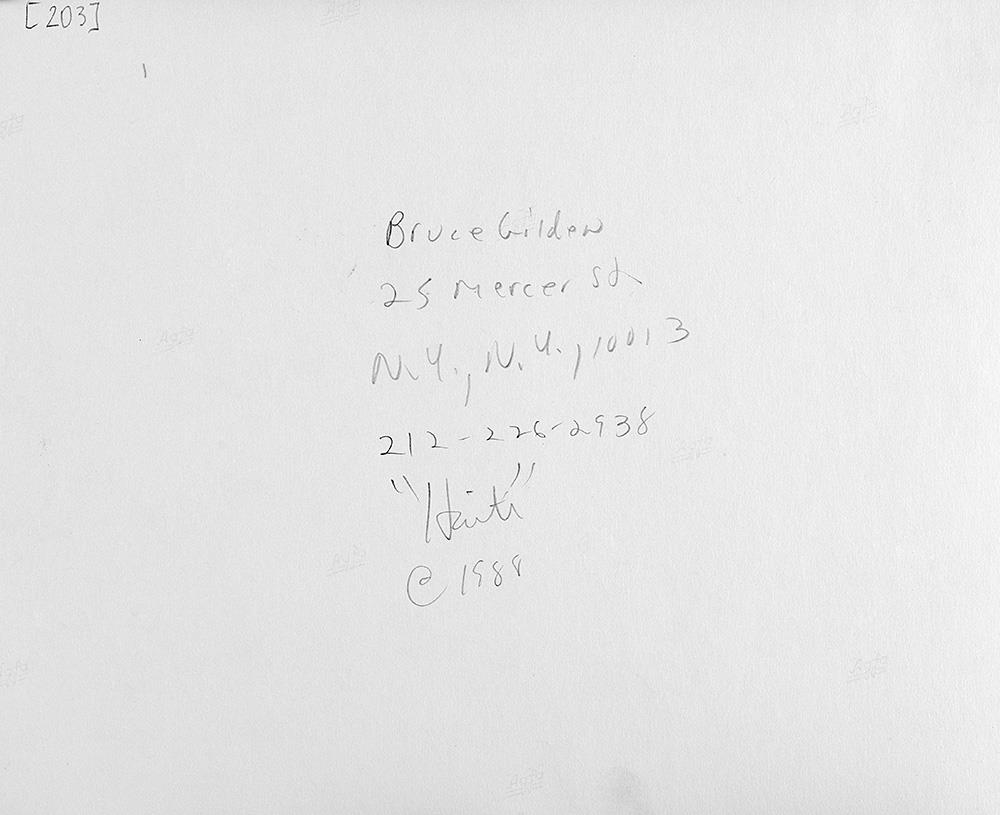 [203]
Bruce Gilden
25 Mercer St
N.Y., N.Y., 10013
212-226-2938
"Haiti"
© 1988